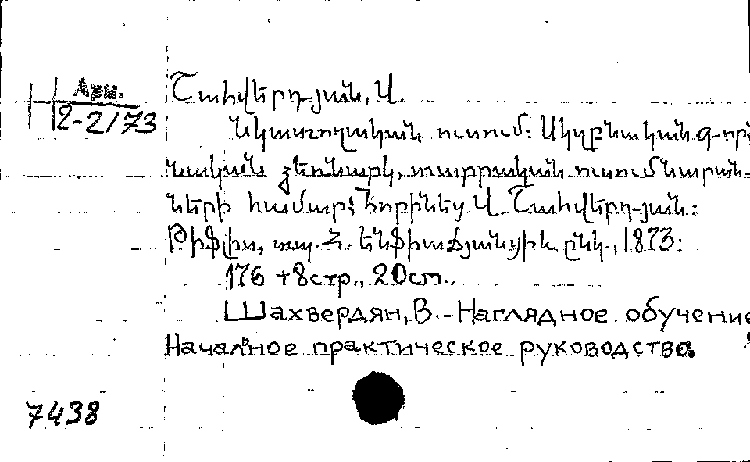 Арм.
2-2/73
Շահվերդյան, Վ.
Նկատողական ուսում: Սկզբնական գործ
նական ձեռնարկ, տարրական ուսումնարան-
ների համար: Հորինեց Վ. Շահվերդ-յան:
Թիֆլիս, տպ. Հ. Էնֆիաճյանցի և ընկ., 1873:
176 +8стр., 20см.
Шахвердян, В. - Наглядное обучение
Начальное практическое руководство
7438